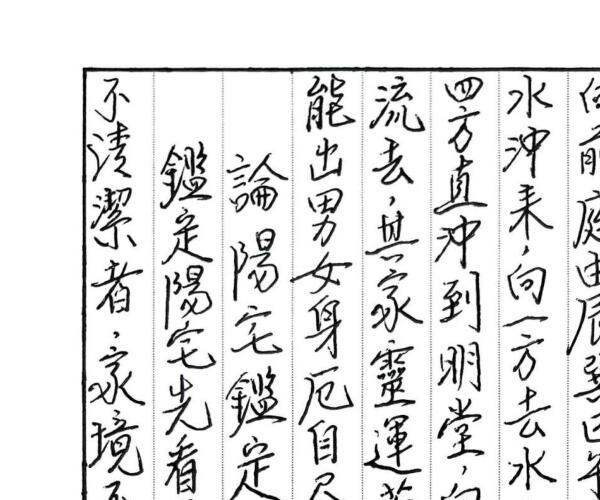 前庭由辰巽巳
水沖来，向一方去水
四方直沖到明堂，向
流去，其家靈運
能出男女身厄自
論陽宅鑑定
鑑定陽宅先看
不清潔者，家境不